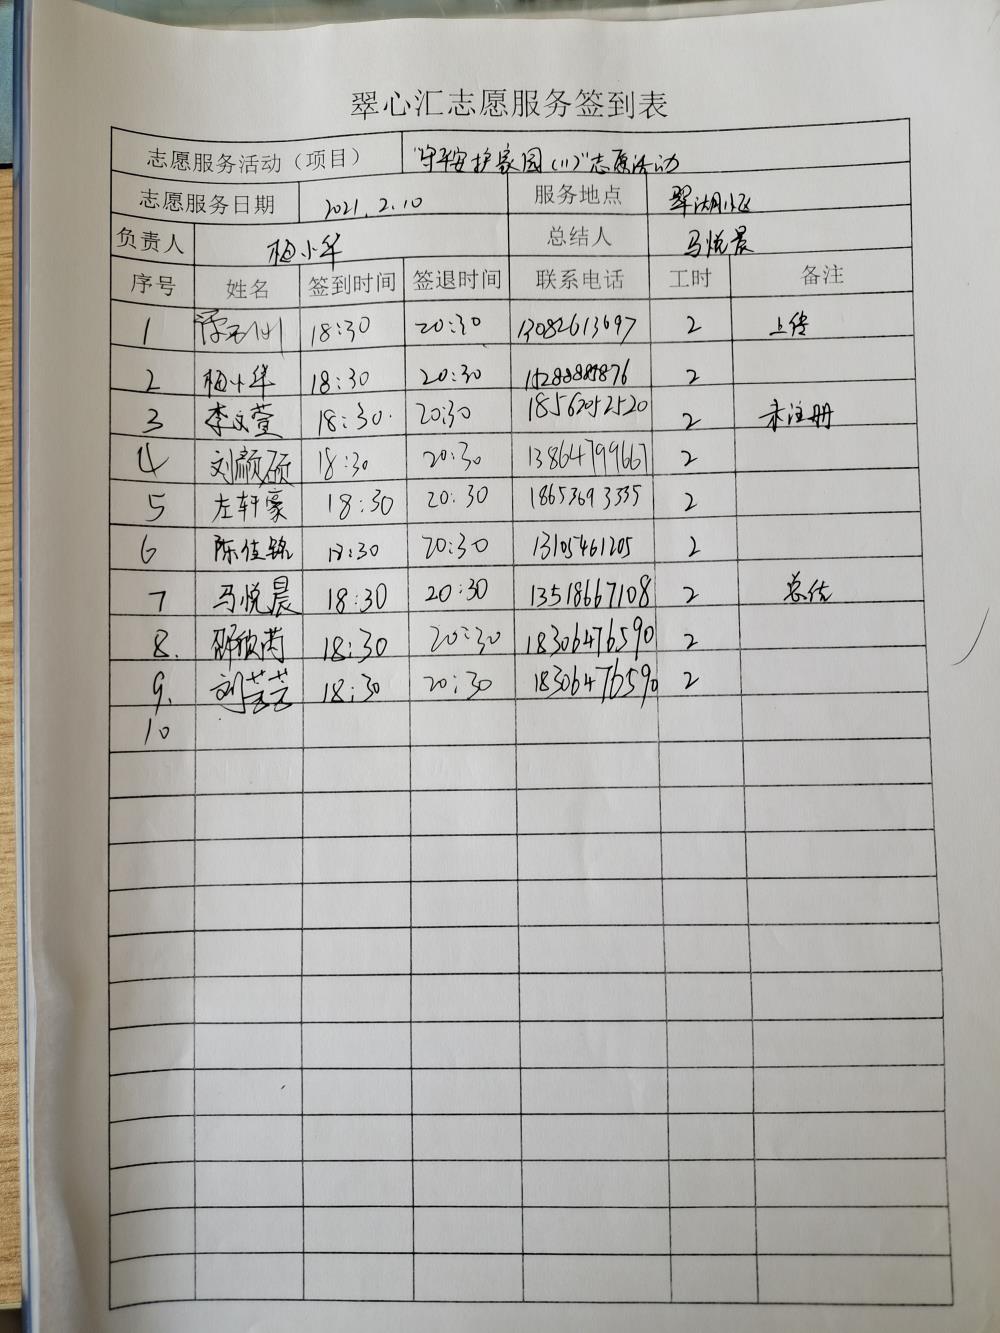 翠心汇志愿服务签到表
志愿服务活动（项目） "守平安护家园(11)"志愿活动
志愿服务日期 2021.2.10 服务地点 翠湖小区
负责人 梅小华 总结人 马悦晨
序号 姓名 签到时间 签退时间 联系电话 工时 备注
1 18:30 20:30 13082613697 2 上传
2 梅小华 18:30 20:30 2
3 李文萱 18:30 20:30 18562052520 2 未注册
4 刘颜硕 18:30 20:30 13864799667 2
5 左轩豪 18:30 20:30 18653693335 2
6 陈佳铭 18:30 20:30 13105461205 2
7 马悦晨 18:30 20:30 13518667108 2 总结
8. 邵欣芮 18:30 20:30 18306476590 2
9. 刘芸芸 18:30 20:30 18306476590 2
10